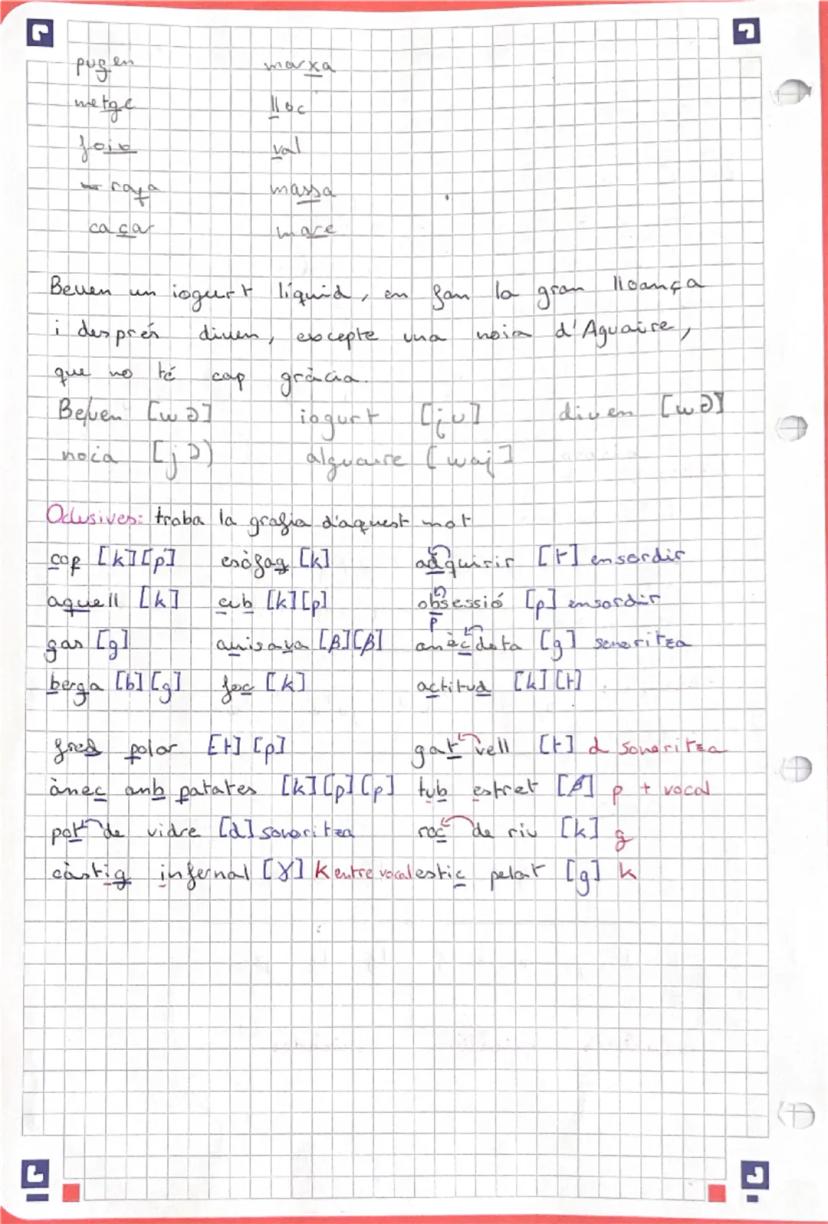 pugen marxa
metge lloc
joia val
raça massa
caçar mare
Beuen un iogurt líquid, en fan la gran lloança
i després diuen, excepte una noia d'Aguaire,
que no té cap gràcia.
Beuen [wə] iogurt [ju] diuen [wə]
noia [jə] alguaire [waj]
Oclusives: troba la grafia d'aquest mot
cop [k][p] esòfag [k] adquirir [t] ensordir
aquell [k] cub [k][p] obsessió [p] ensordir
p
gas [g] avisava [β][β] anècdota [g] sonoritza
berga [b][g] foc [k] actitud [k][t]
fred polar [t][p] gat vell [t] d sonoritza
ànec amb patates [k][p][p] tub estret [β] p + vocal
pot de vidre [d] sonoritza roc de riu [k] g
càstig infernal [ɣ] k entre vocal estic pelat [g] k